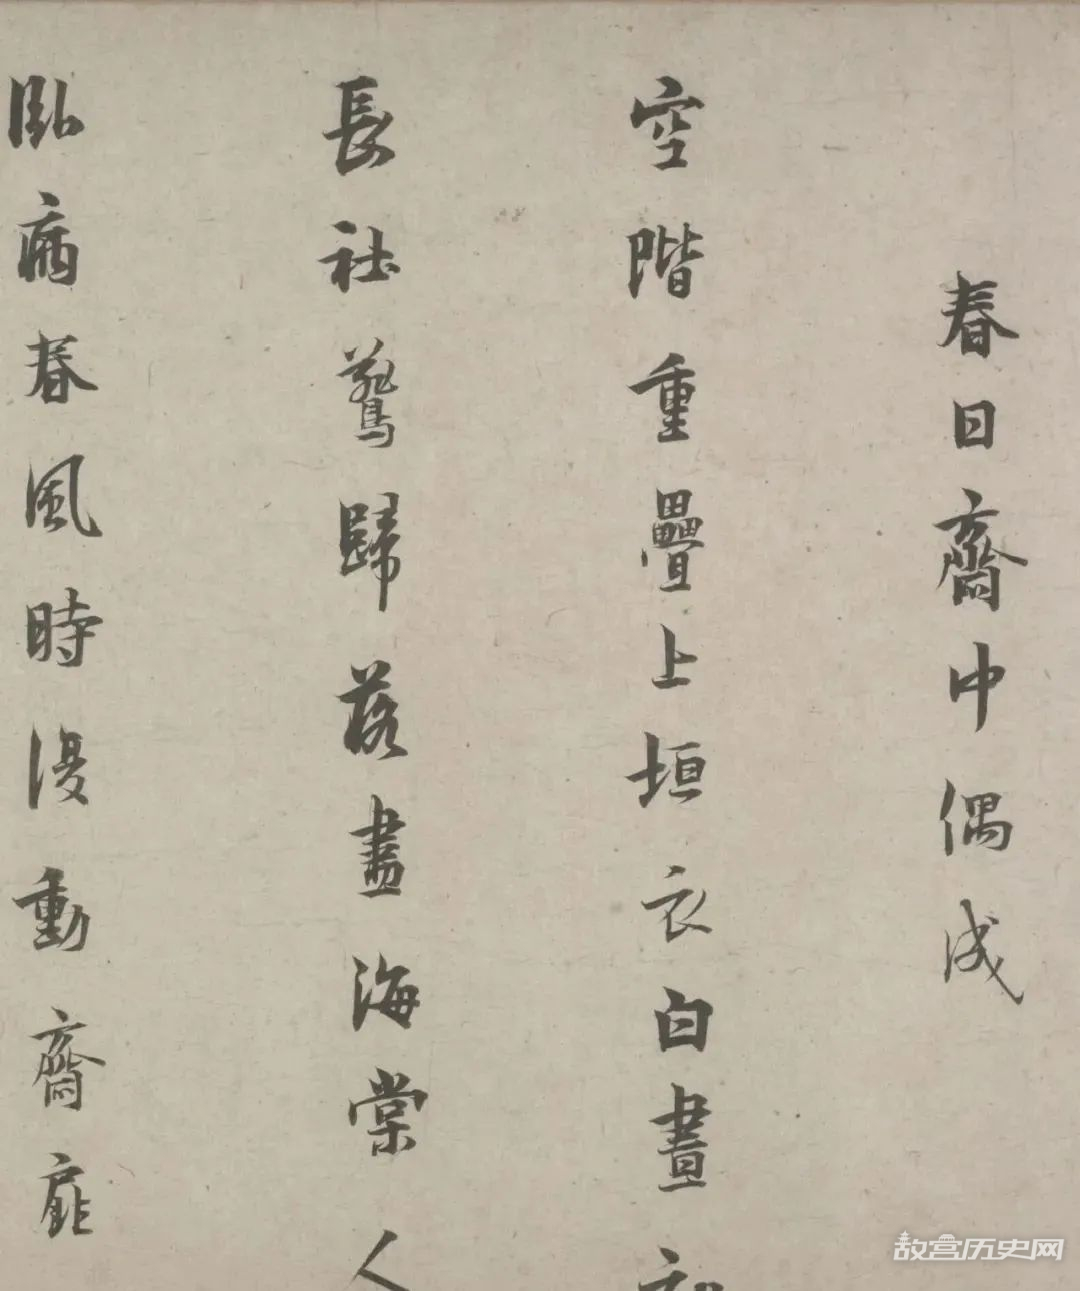 春日齋中偶成
空階重疊上垣衣白晝
長社鶩歸落盡海棠人
臥病春風時復動齋扉
故宫历史网